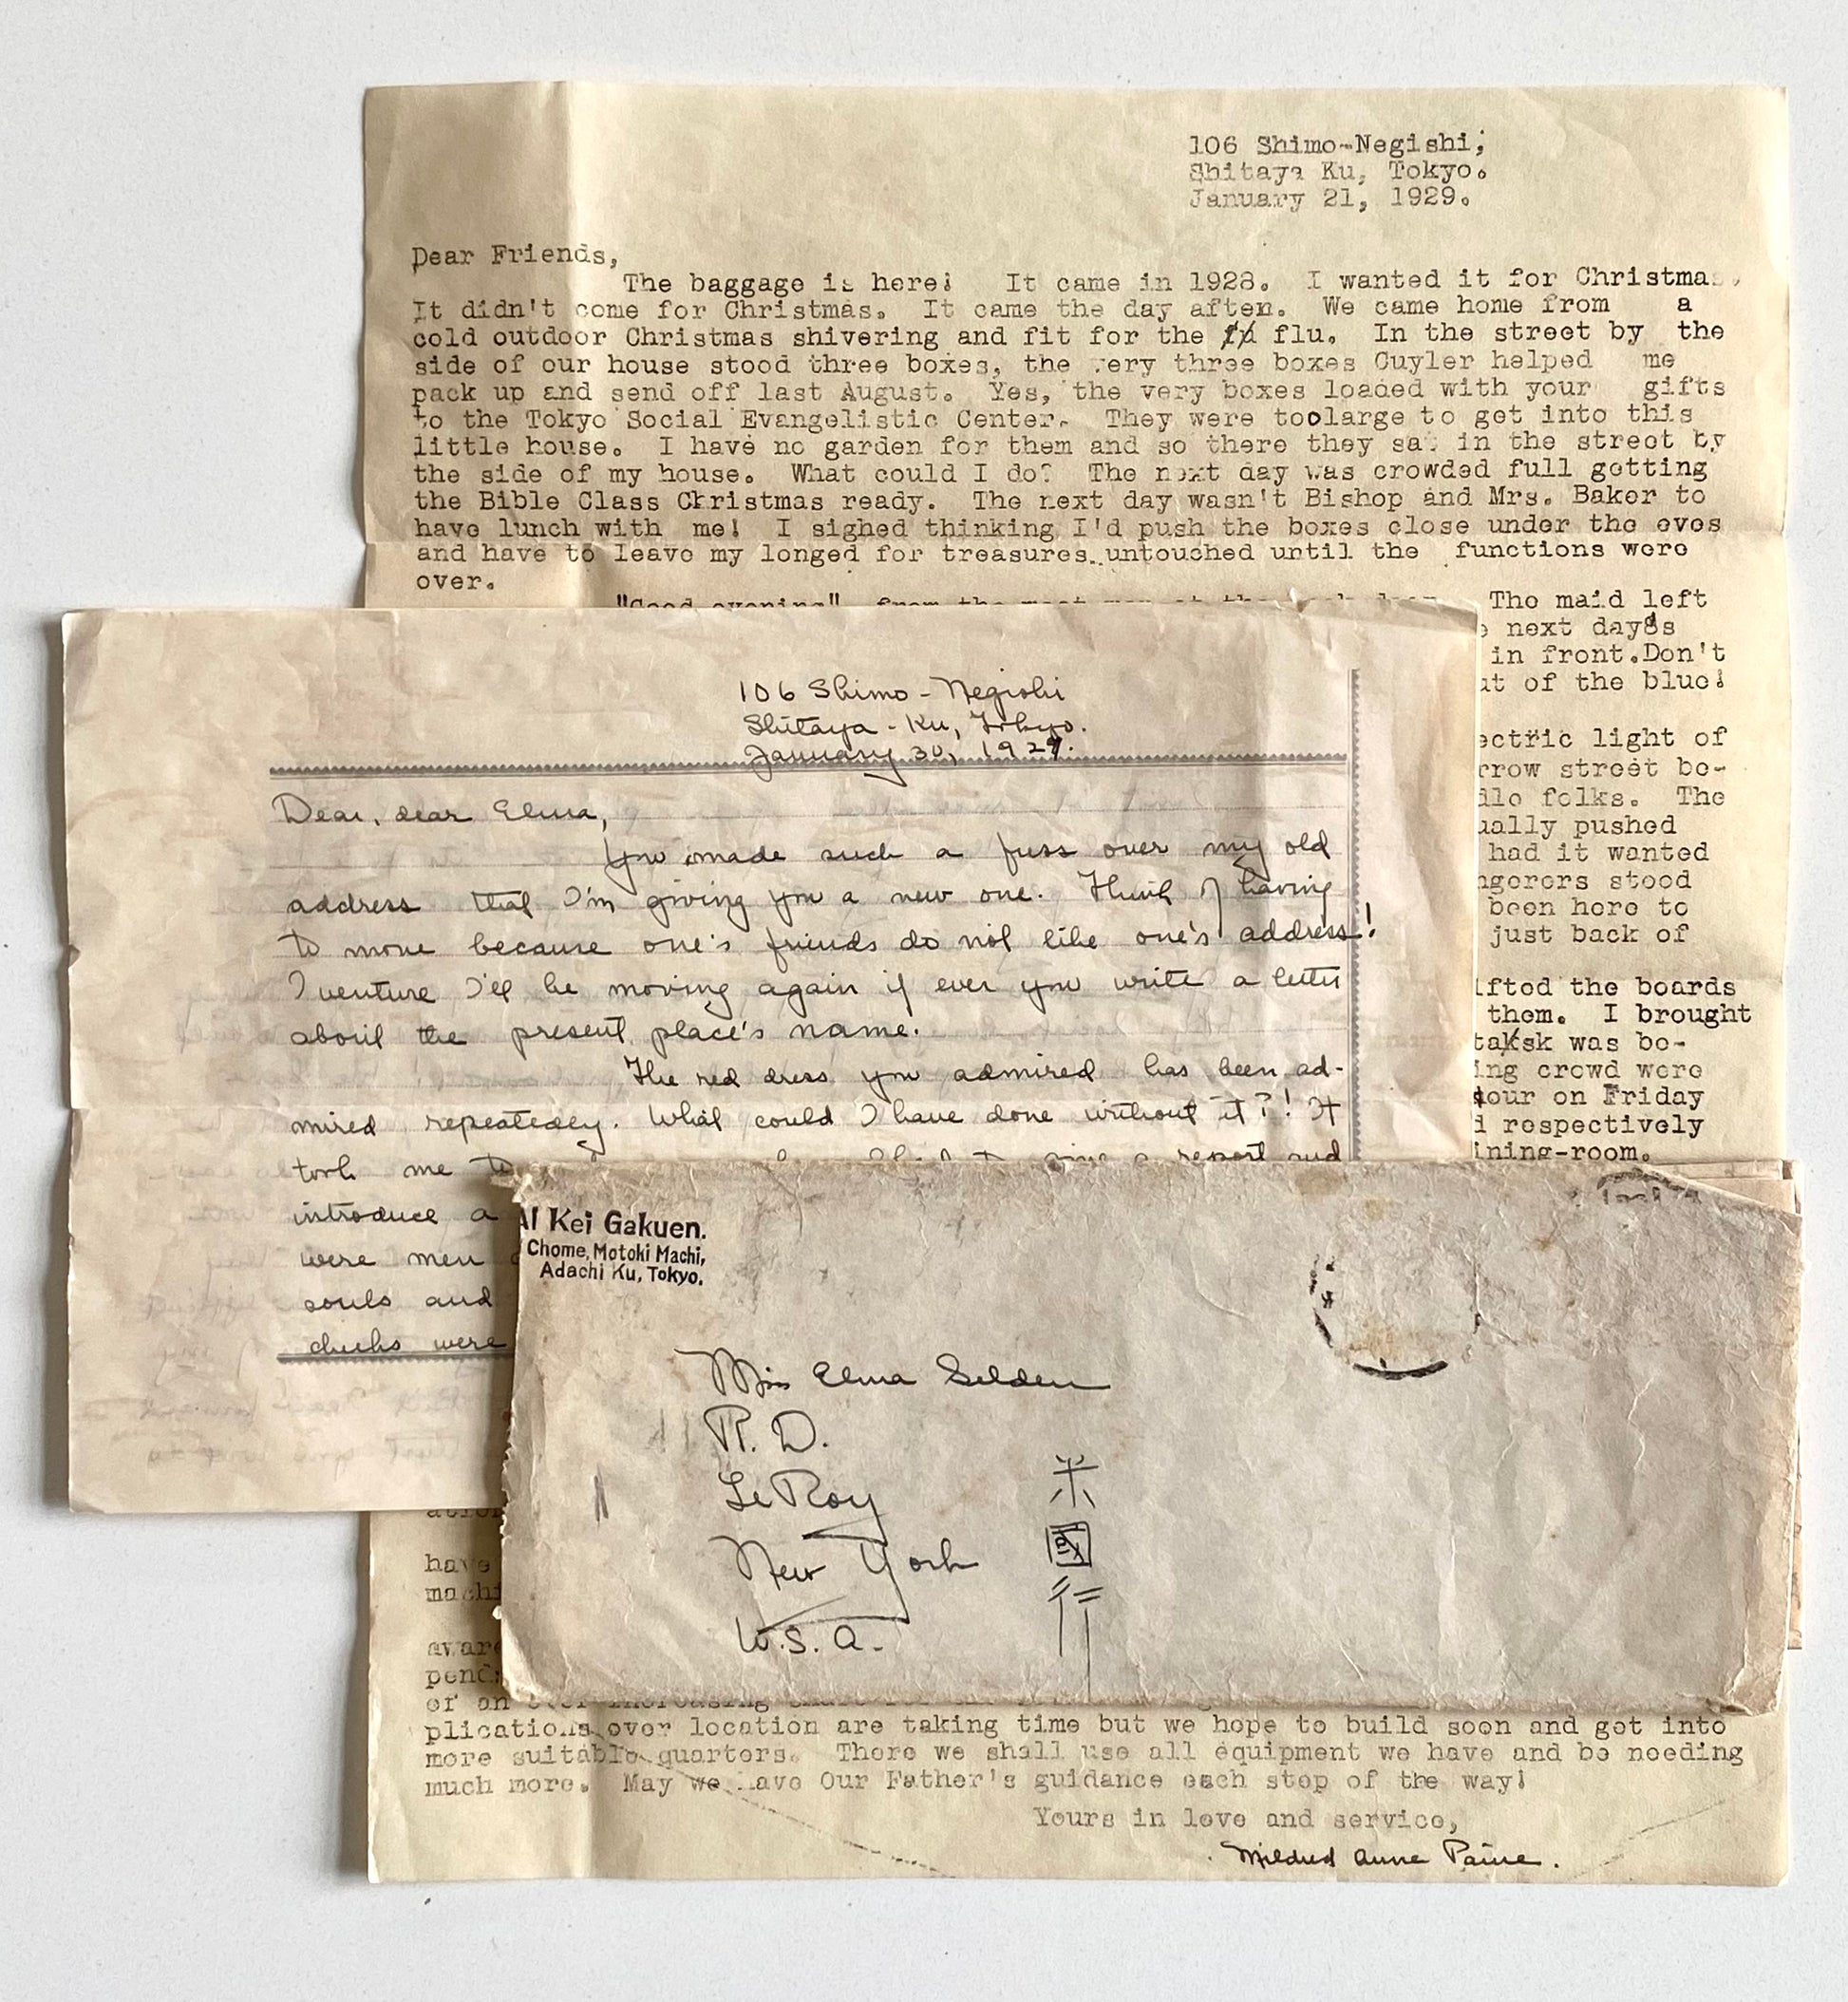 106 Shimo-Negishi,
Shitaya Ku, Tokyo.
January 21, 1929.
Dear Friends,
The baggage is here! It came in 1928. I wanted it for Christmas,
It didn't come for Christmas. It came the day after. We came home from a
cold outdoor Christmas shivering and fit for the flu. In the street by the
side of our house stood three boxes, the very three boxes Cuyler helped me
pack up and send off last August. Yes, the very boxes loaded with your gifts
to the Tokyo Social Evangelistic Center. They were toolarge to get into this
little house. I have no garden for them and so there they sat in the street by
the side of my house. What could I do? The next day was crowded full getting
the Bible Class Christmas ready. The next day wasn't Bishop and Mrs. Baker to
have lunch with me! I sighed thinking I'd push the boxes close under the eves
and have to leave my longed for treasures untouched until the functions were
over.
"Good evening", from the The maid left
next days
in front.Don't
of the blue!
light of
street be-
folks. The
pushed
had it wanted
stood
been here to
just back of
the boards
them. I brought
was be-
crowd were
on Friday
respectively
106 Shimo-Negishi
Shitaya-Ku, Tokyo.
January 30, 1929.
Dear, dear Elma,
You made such a fuss over my old
address that I'm giving you a new one. Think of having
to move because one's friends do not like one's address!
I venture I'll be moving again if ever you write a letter
about the present place's name.
The red dress you admired has been ad-
mired repeatedly. What could I have done without it?! It
took me to give a report and
introduce a
were men
souls and
cheeks were
AI Kei Gakuen.
Chome, Motoki Machi,
Adachi Ku, Tokyo.
Miss Elma Selden
R. D.
LeRoy
New York
U.S.A.
米
國
行
have
plications over location are taking time but we hope to build soon and get into
more suitable quarters. There we shall use all equipment we have and be needing
much more. May we have Our Father's guidance each step of the way!
Yours in love and service,
Mildred Anne Paine.